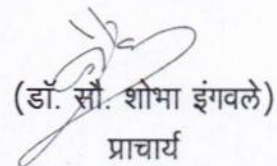 (डॉ. सौ. शोभा इंगवले)
प्राचार्य